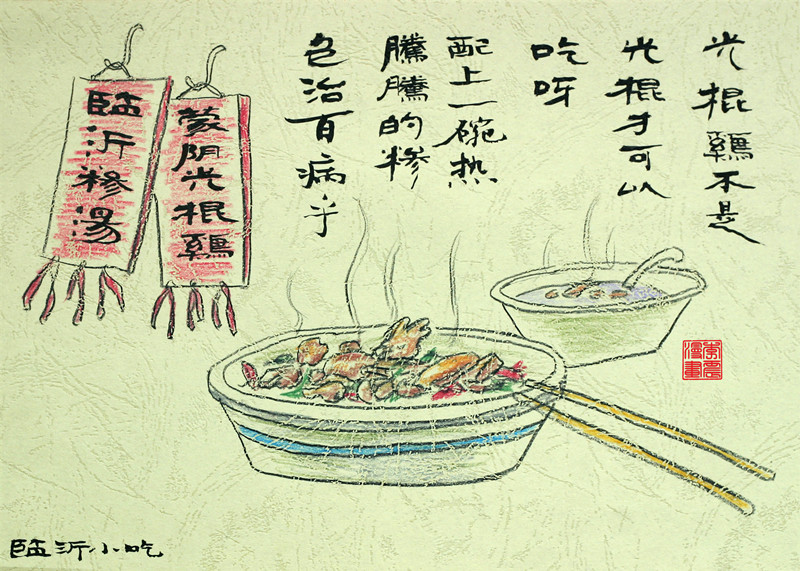 光棍鷄不是
光棍才可以
吃呀
配上一碗热
騰騰的糁
包治百病乎
蒙阴光棍鷄
臨沂糁湯
李震
漫畫
臨沂小吃